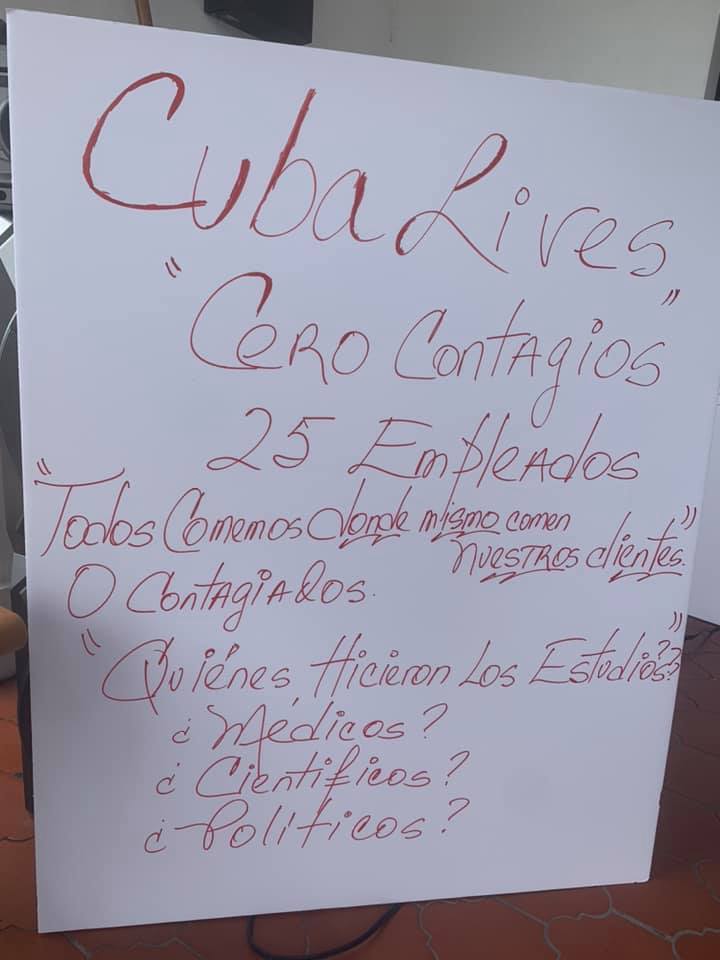 Cuba Lives
"Cero Contagios"
25 Empleados
"Todos Comemos donde mismo comen
nuestros clientes."
0 Contagiados.
"Quiénes Hicieron Los Estudios??"
¿Médicos?
¿Científicos?
¿Políticos?